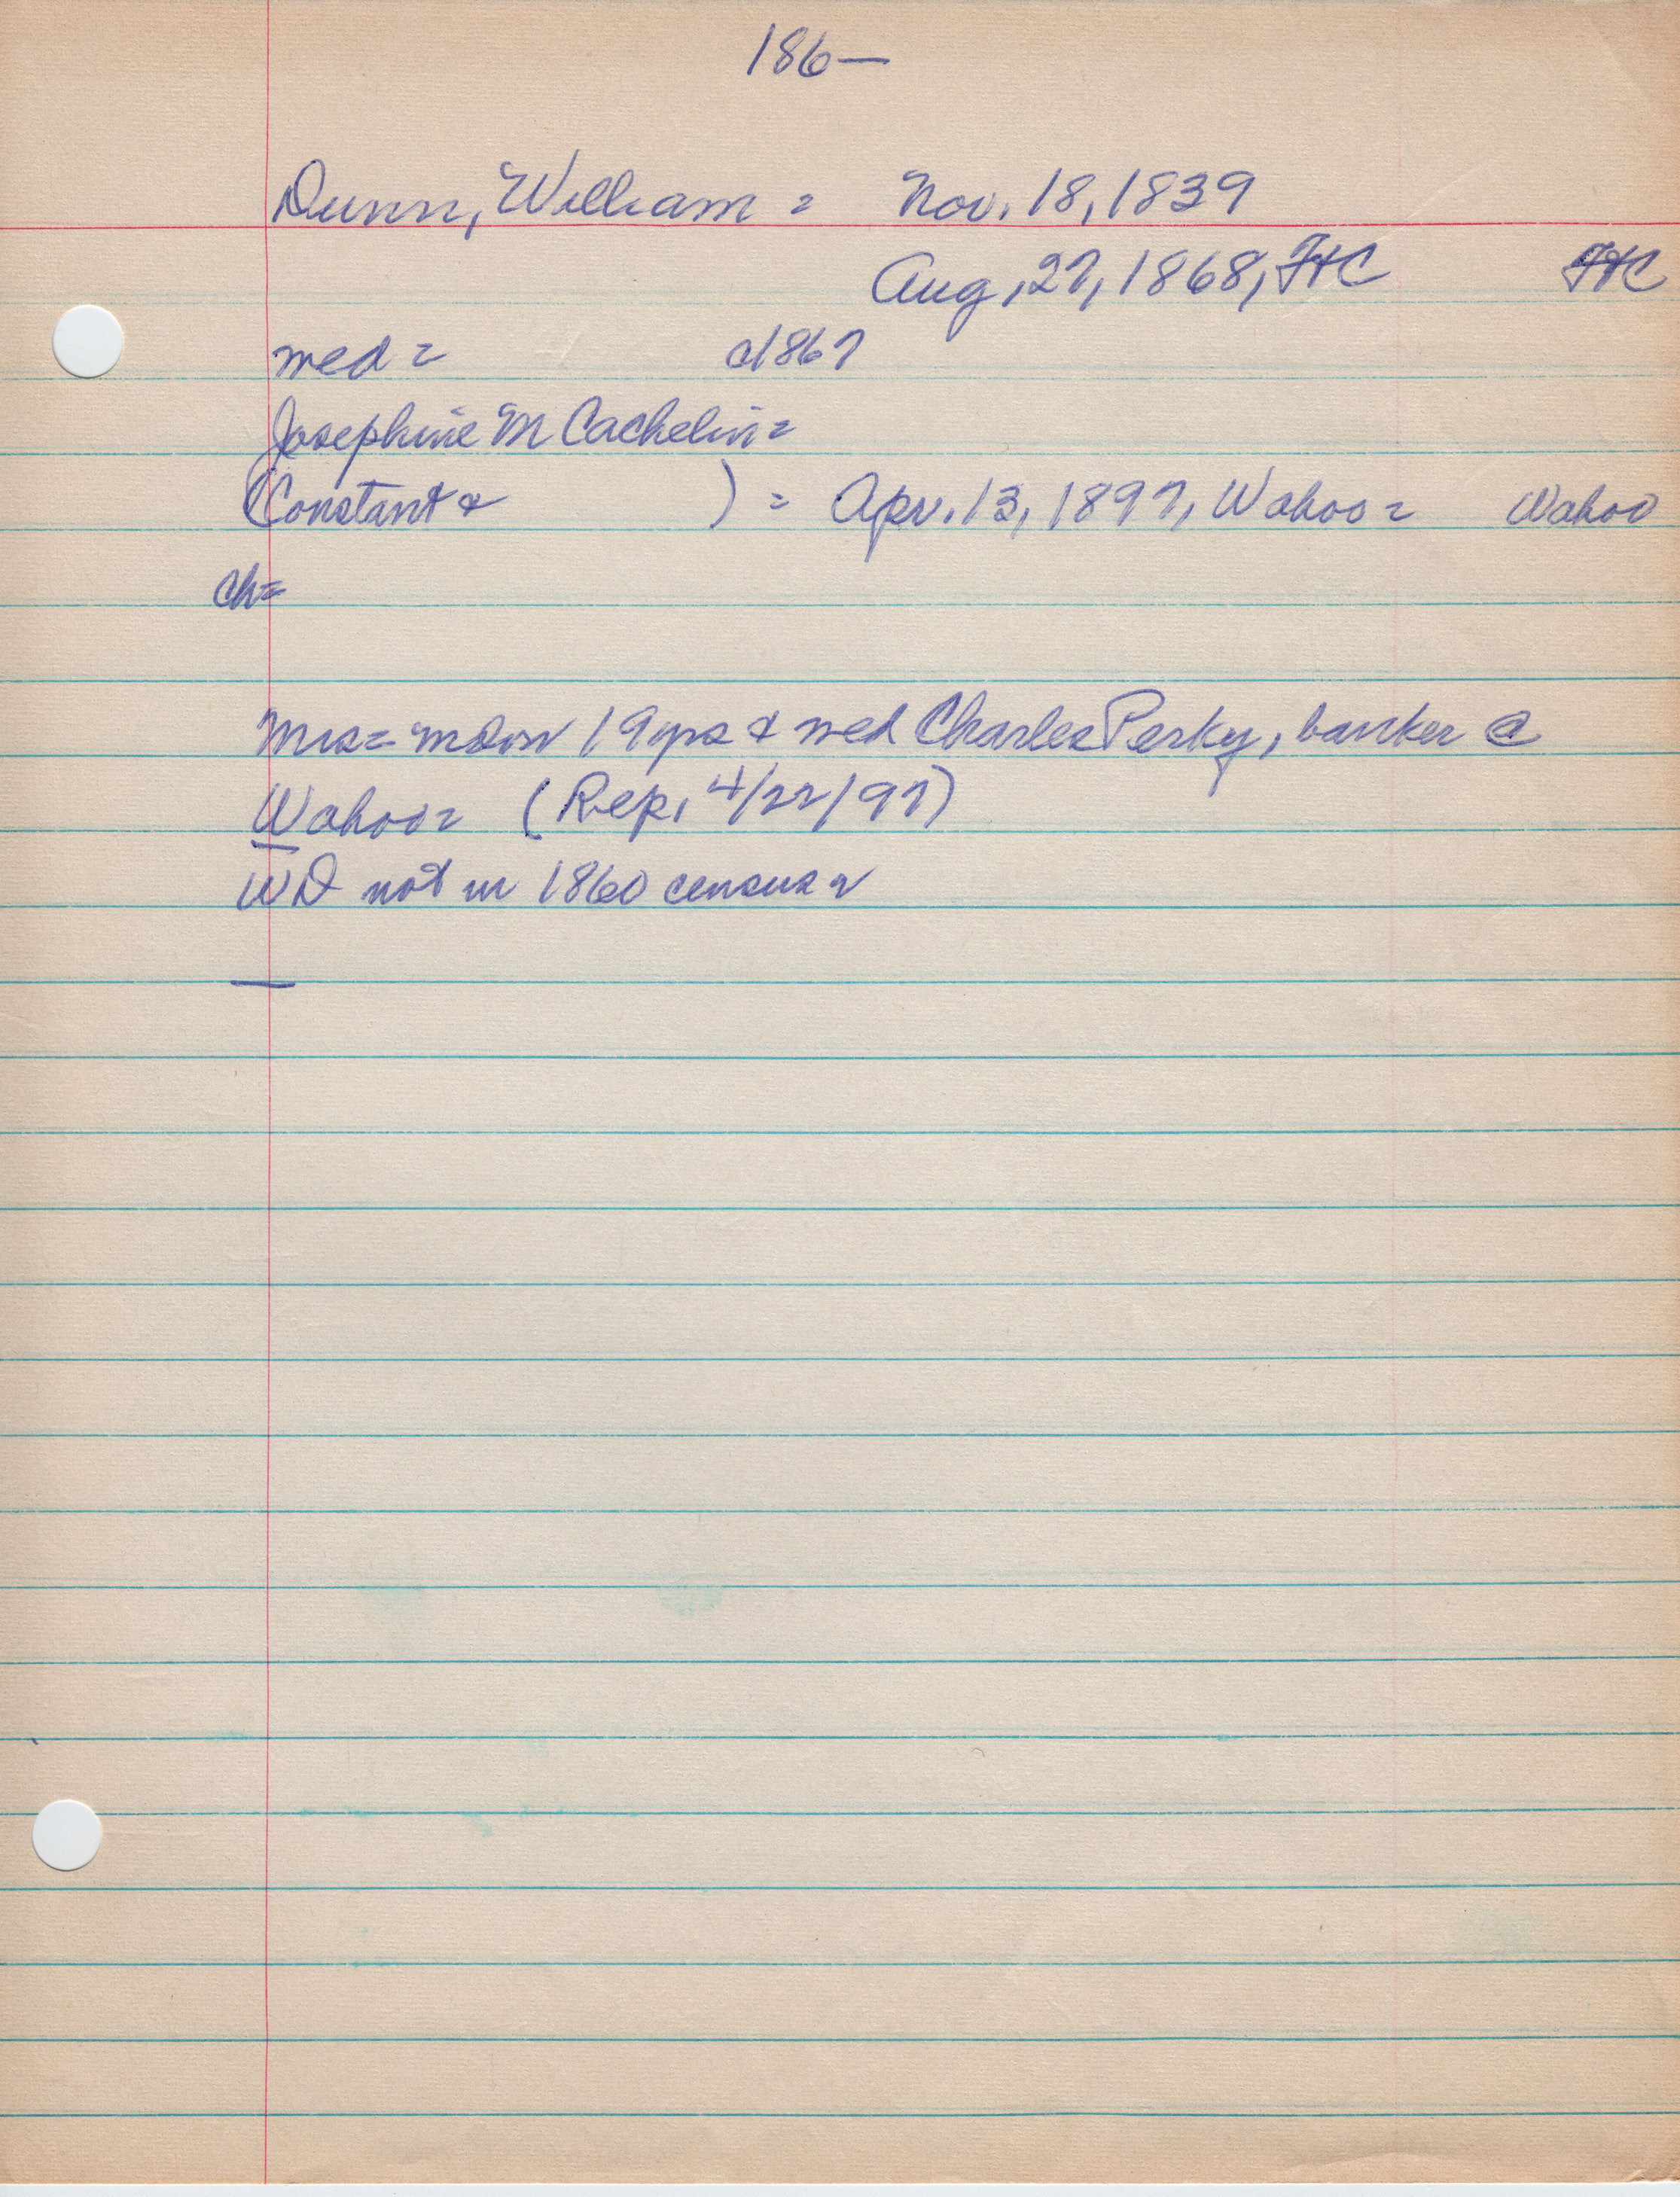 186—
Dunn, William = Nov. 18, 1839
Aug, 27, 1868, FtC FtC
wed = c1867
Josephine M Cachelin =
(Constant & ) = Apr. 13, 1897, Wahoo = Wahoo
ch=
Mrs= 19 yrs & wed Charles Perky, banker @
Wahoo= (Rep, 4/22/97)
WD not in 1860 census